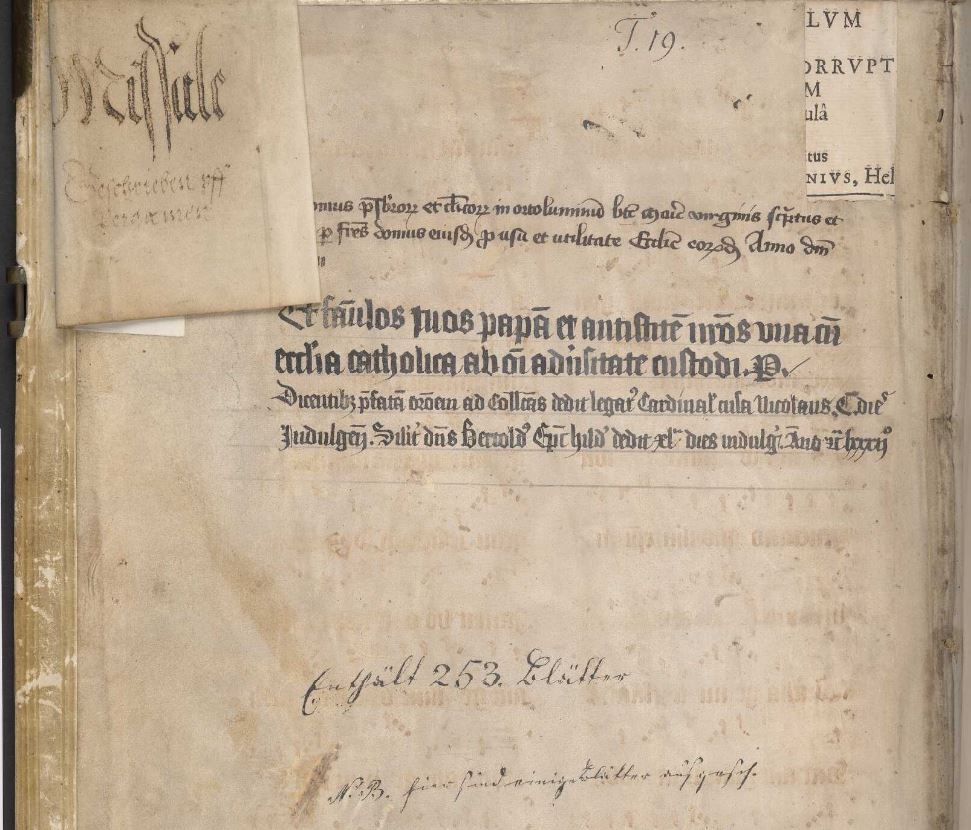 Missale
Geschrieben vff
Pergamen
T. 19.
LVM
ORRVPT
M
ulâ
tus
NIVS, Hel
omus p̄sb̄roꝝ et cl̄icoꝝ in ortoluminū bt̄e Marie virginis sc̄ptus et
ꝑ fr̄es domus eiusdē ꝓ usu et utilitate Ecclīe eorūdē Anno dm̄
Et fāulos tuos papā et antistitē nr̄os vna cū
ecclīa catholica ab oī adūsitate custodi. P.
Dicentibꝫ p̄fatā or̄oem ad Coll̄cas dedit legat⁹ Cardinal̄ cusa Nicolaus. C. dieꝝ
Indulgen̄. Sil̄it dn̄s Bertold⁹ Ep̄c hild̄ dedit xl dies indulḡ. Āno
Enthält 253. Blätter
N. B. hier sind einige Blätter ausgesch.